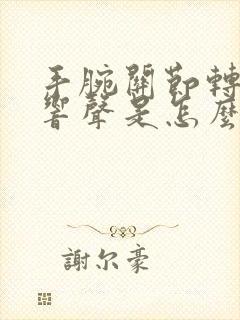 手腕關節轉
響聲是怎麼
謝尔豪